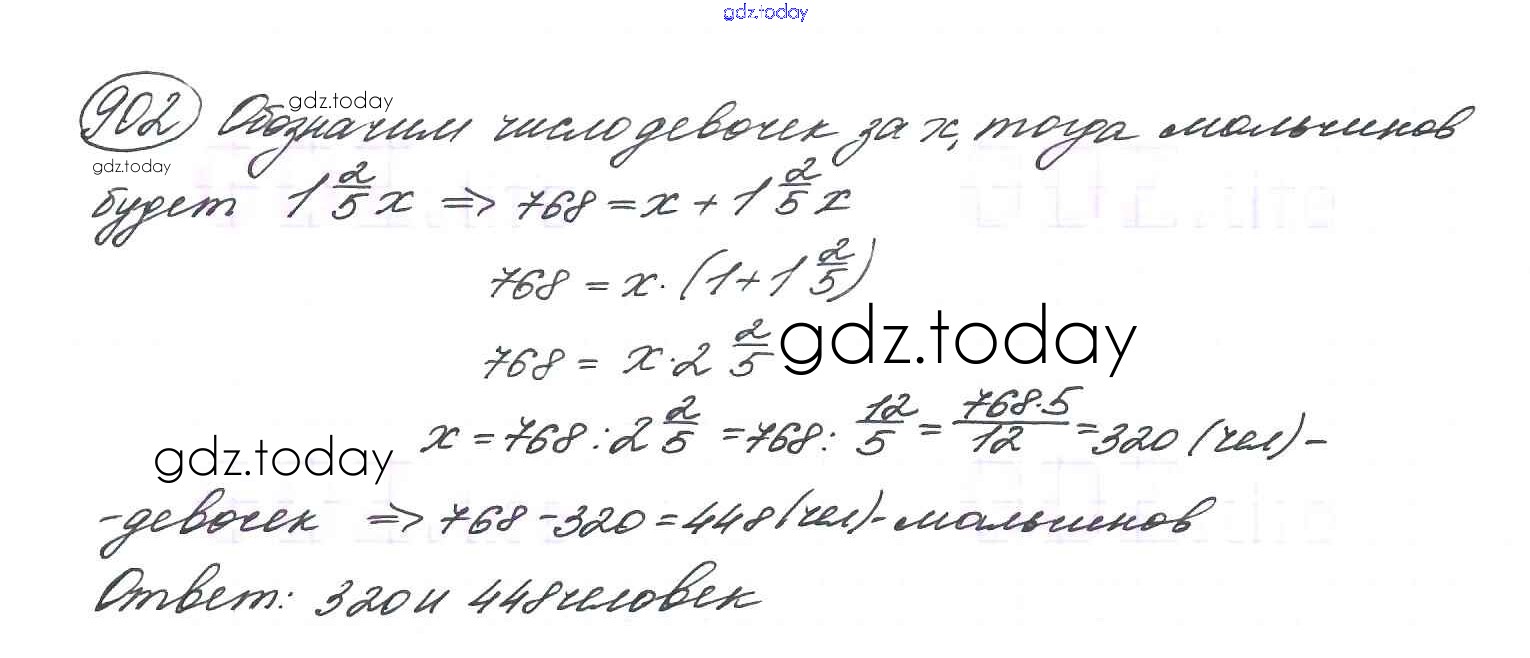 gdz.today
902 gdz.today Обозначим число девочек за x, тогда мальчиков
gdz.today
будет 1 2/5 x => 768 = x + 1 2/5 x
768 = x · (1 + 1 2/5)
768 = x · 2 2/5 gdz.today
gdz.today x = 768 : 2 2/5 = 768 : 12/5 = 768·5/12 = 320 (чел) -
- девочек => 768 - 320 = 448 (чел) - мальчиков
Ответ: 320 и 448 человек